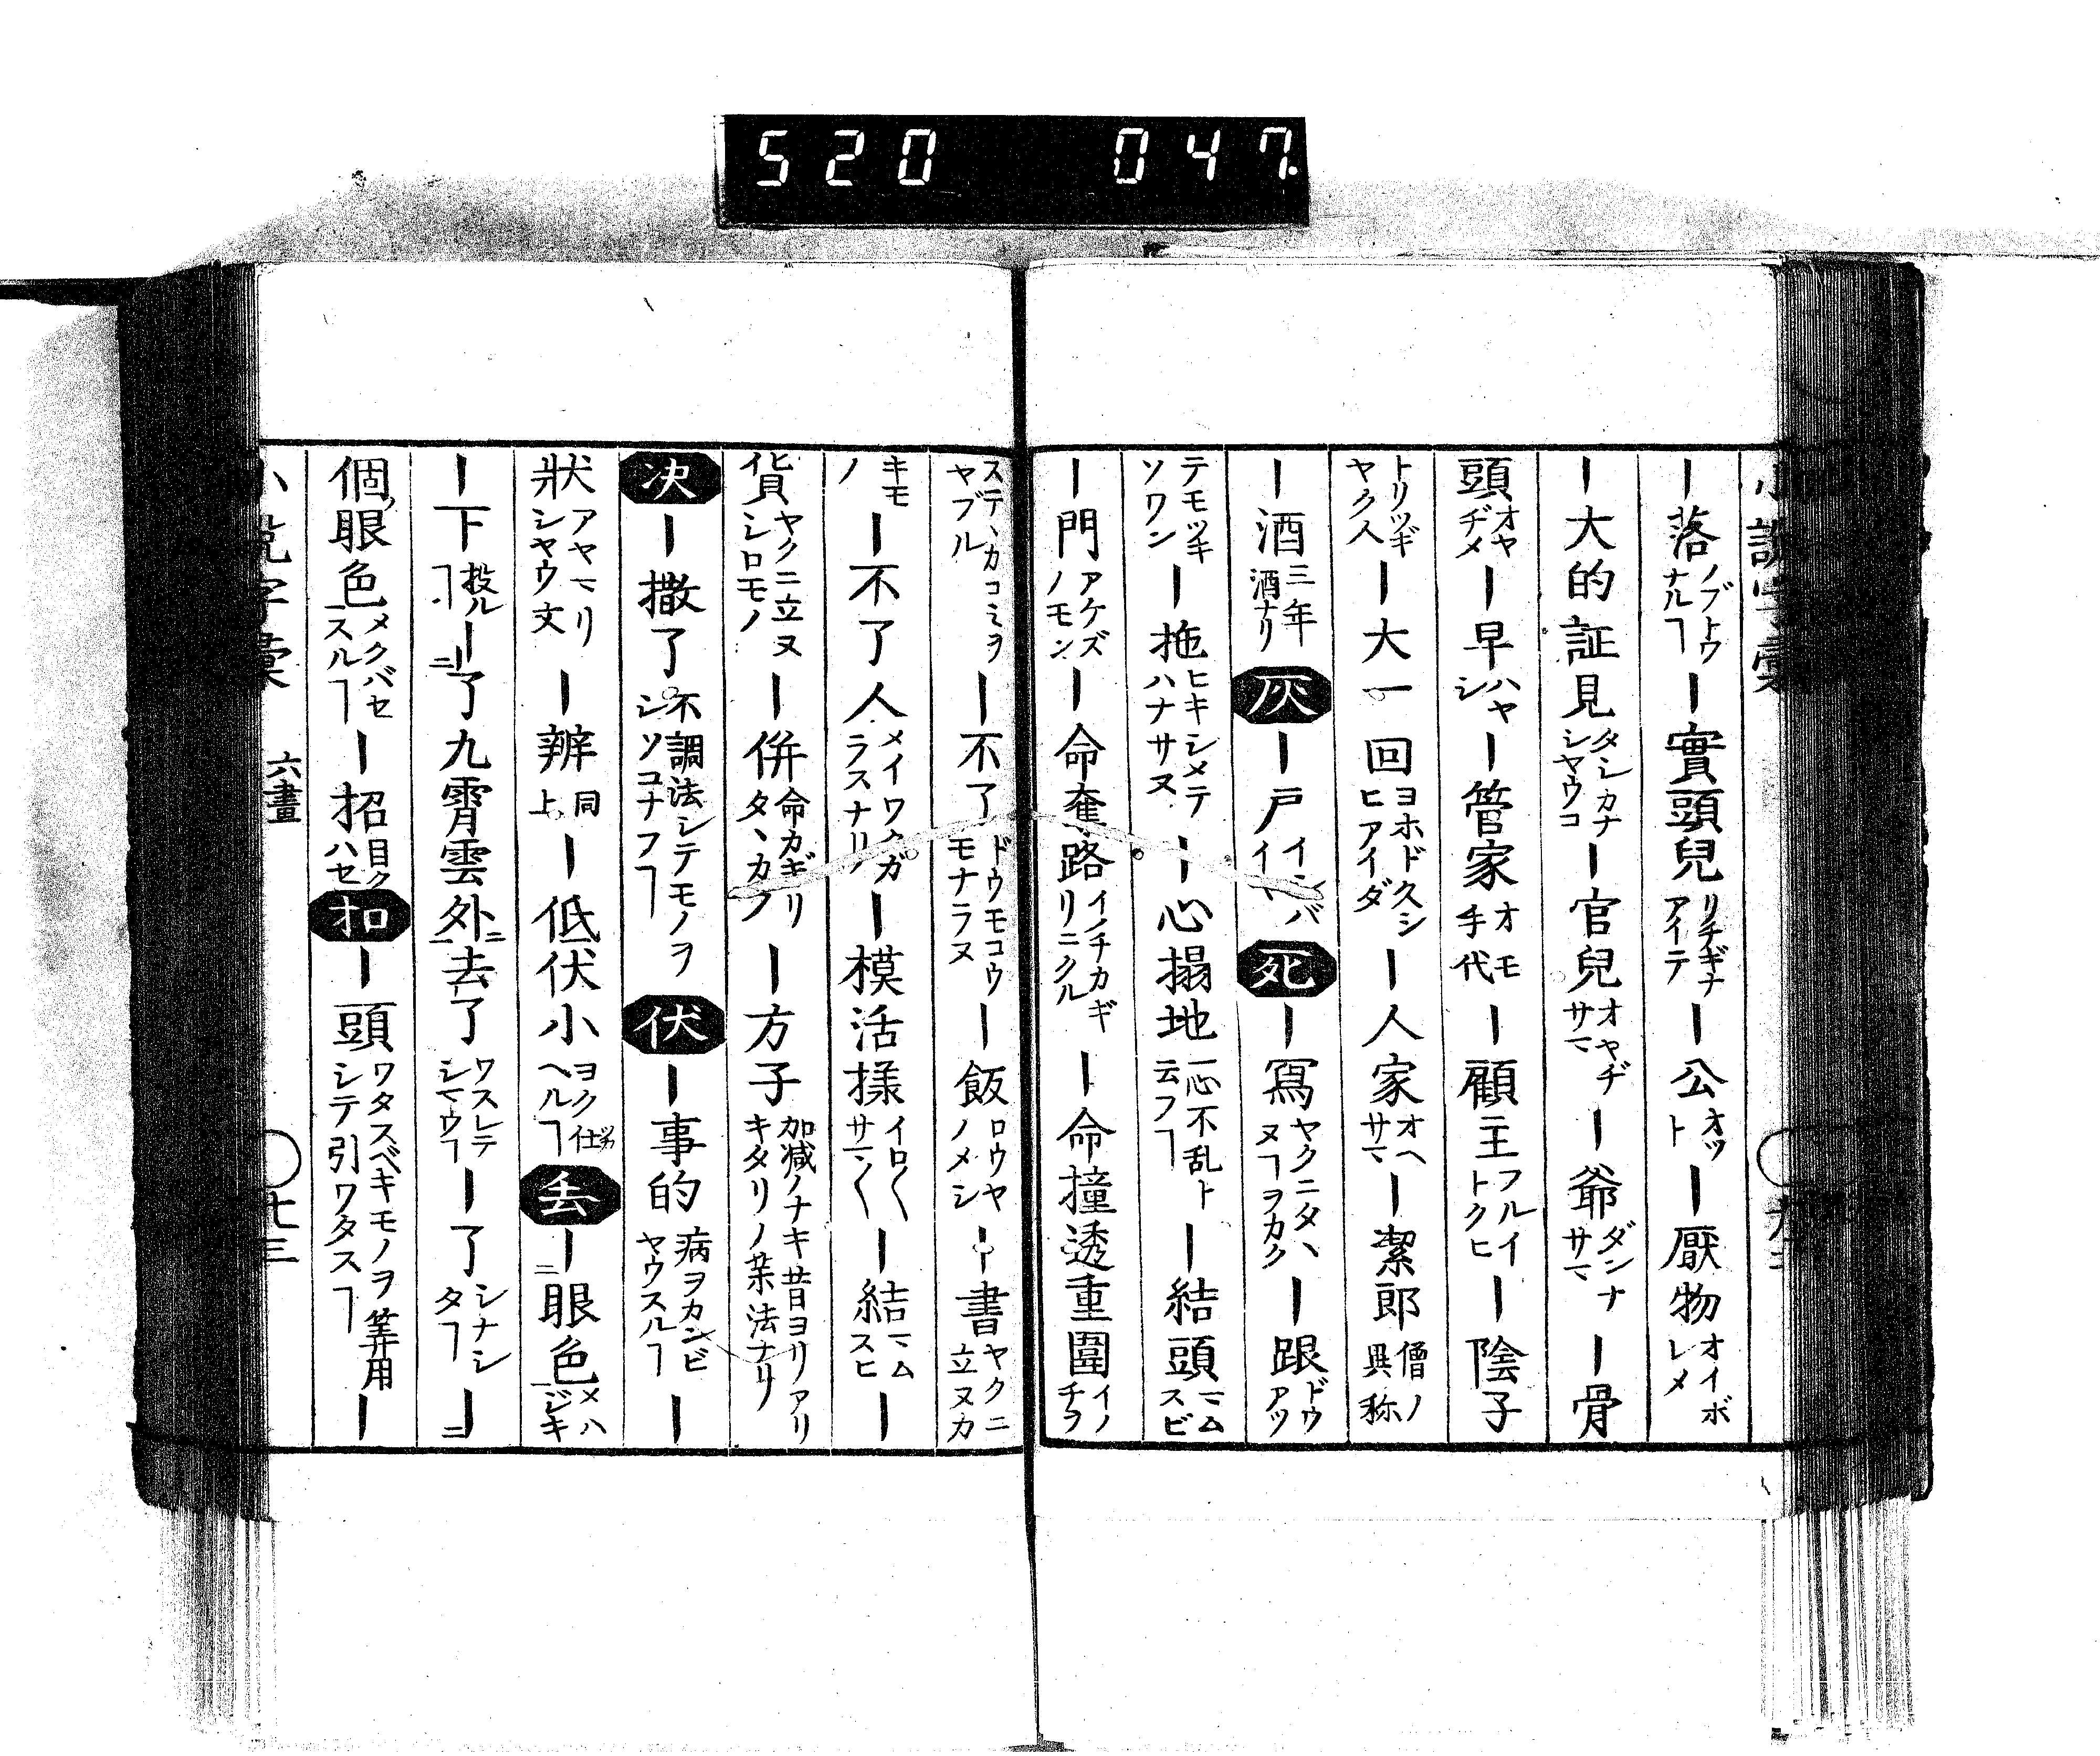 520 047.
｜落ノブトウナルヿ｜實頭兒リチギナアイテ｜公オット｜厭物オイボレメ
｜大的証見タシカナシヤウコ｜官兒オヤヂサマ｜爺ダンナサマ｜骨
頭オヤヂメ｜早ハヤシ｜管家オモ手代｜顧主フルイトクヒ｜陰子
トリツギヤク人｜大一回ヨホド久シヒアイダ｜人家オヘサマ｜潔郎僧ノ異称
｜酒三年酒ナリ 灰｜戸 死｜寫ヤクニタヽヌヿヲカク｜跟ドウアツ
テモツキソワン｜拖ヒキシメテハナサヌ｜心搨地一心不乱ト云フヿ｜結頭マムスビ
｜門アケズノモン｜命奪路イチカギリニクル｜命撞透重圍イノチヲ
ステヽカコミヲヤブル｜不了ドウモコウモナラヌ｜飯ロウヤノメシ｜書ヤクニ立ヌカ
キモノ｜不了人メイワクガラスナリ｜模活様イロ〱サマ〱｜結マムスヒ｜
貨ヤクニ立ヌシロモノ｜併命カギリタヽカフ｜方子加減ノナキ昔ヨリアリキタリノ薬法ナリ
决｜撒了不調法シテモノヲシソコナフヿ 伏｜事的病ヲカンビヤウスルヿ｜
狀アヤマリシヤウ文｜辨同上｜低伏小ヨク仕ヘルヿ 丢｜眼色メハジキ
｜下投ルヿ｜了九霄雲外去了ワスレテシマウヿ｜了シナシタヿ｜
個眼色メクバセスルヿ｜招目クハセ 扣｜頭ワタスベキモノヲ筭用シテ引ワタスヿ｜
六畫 七三